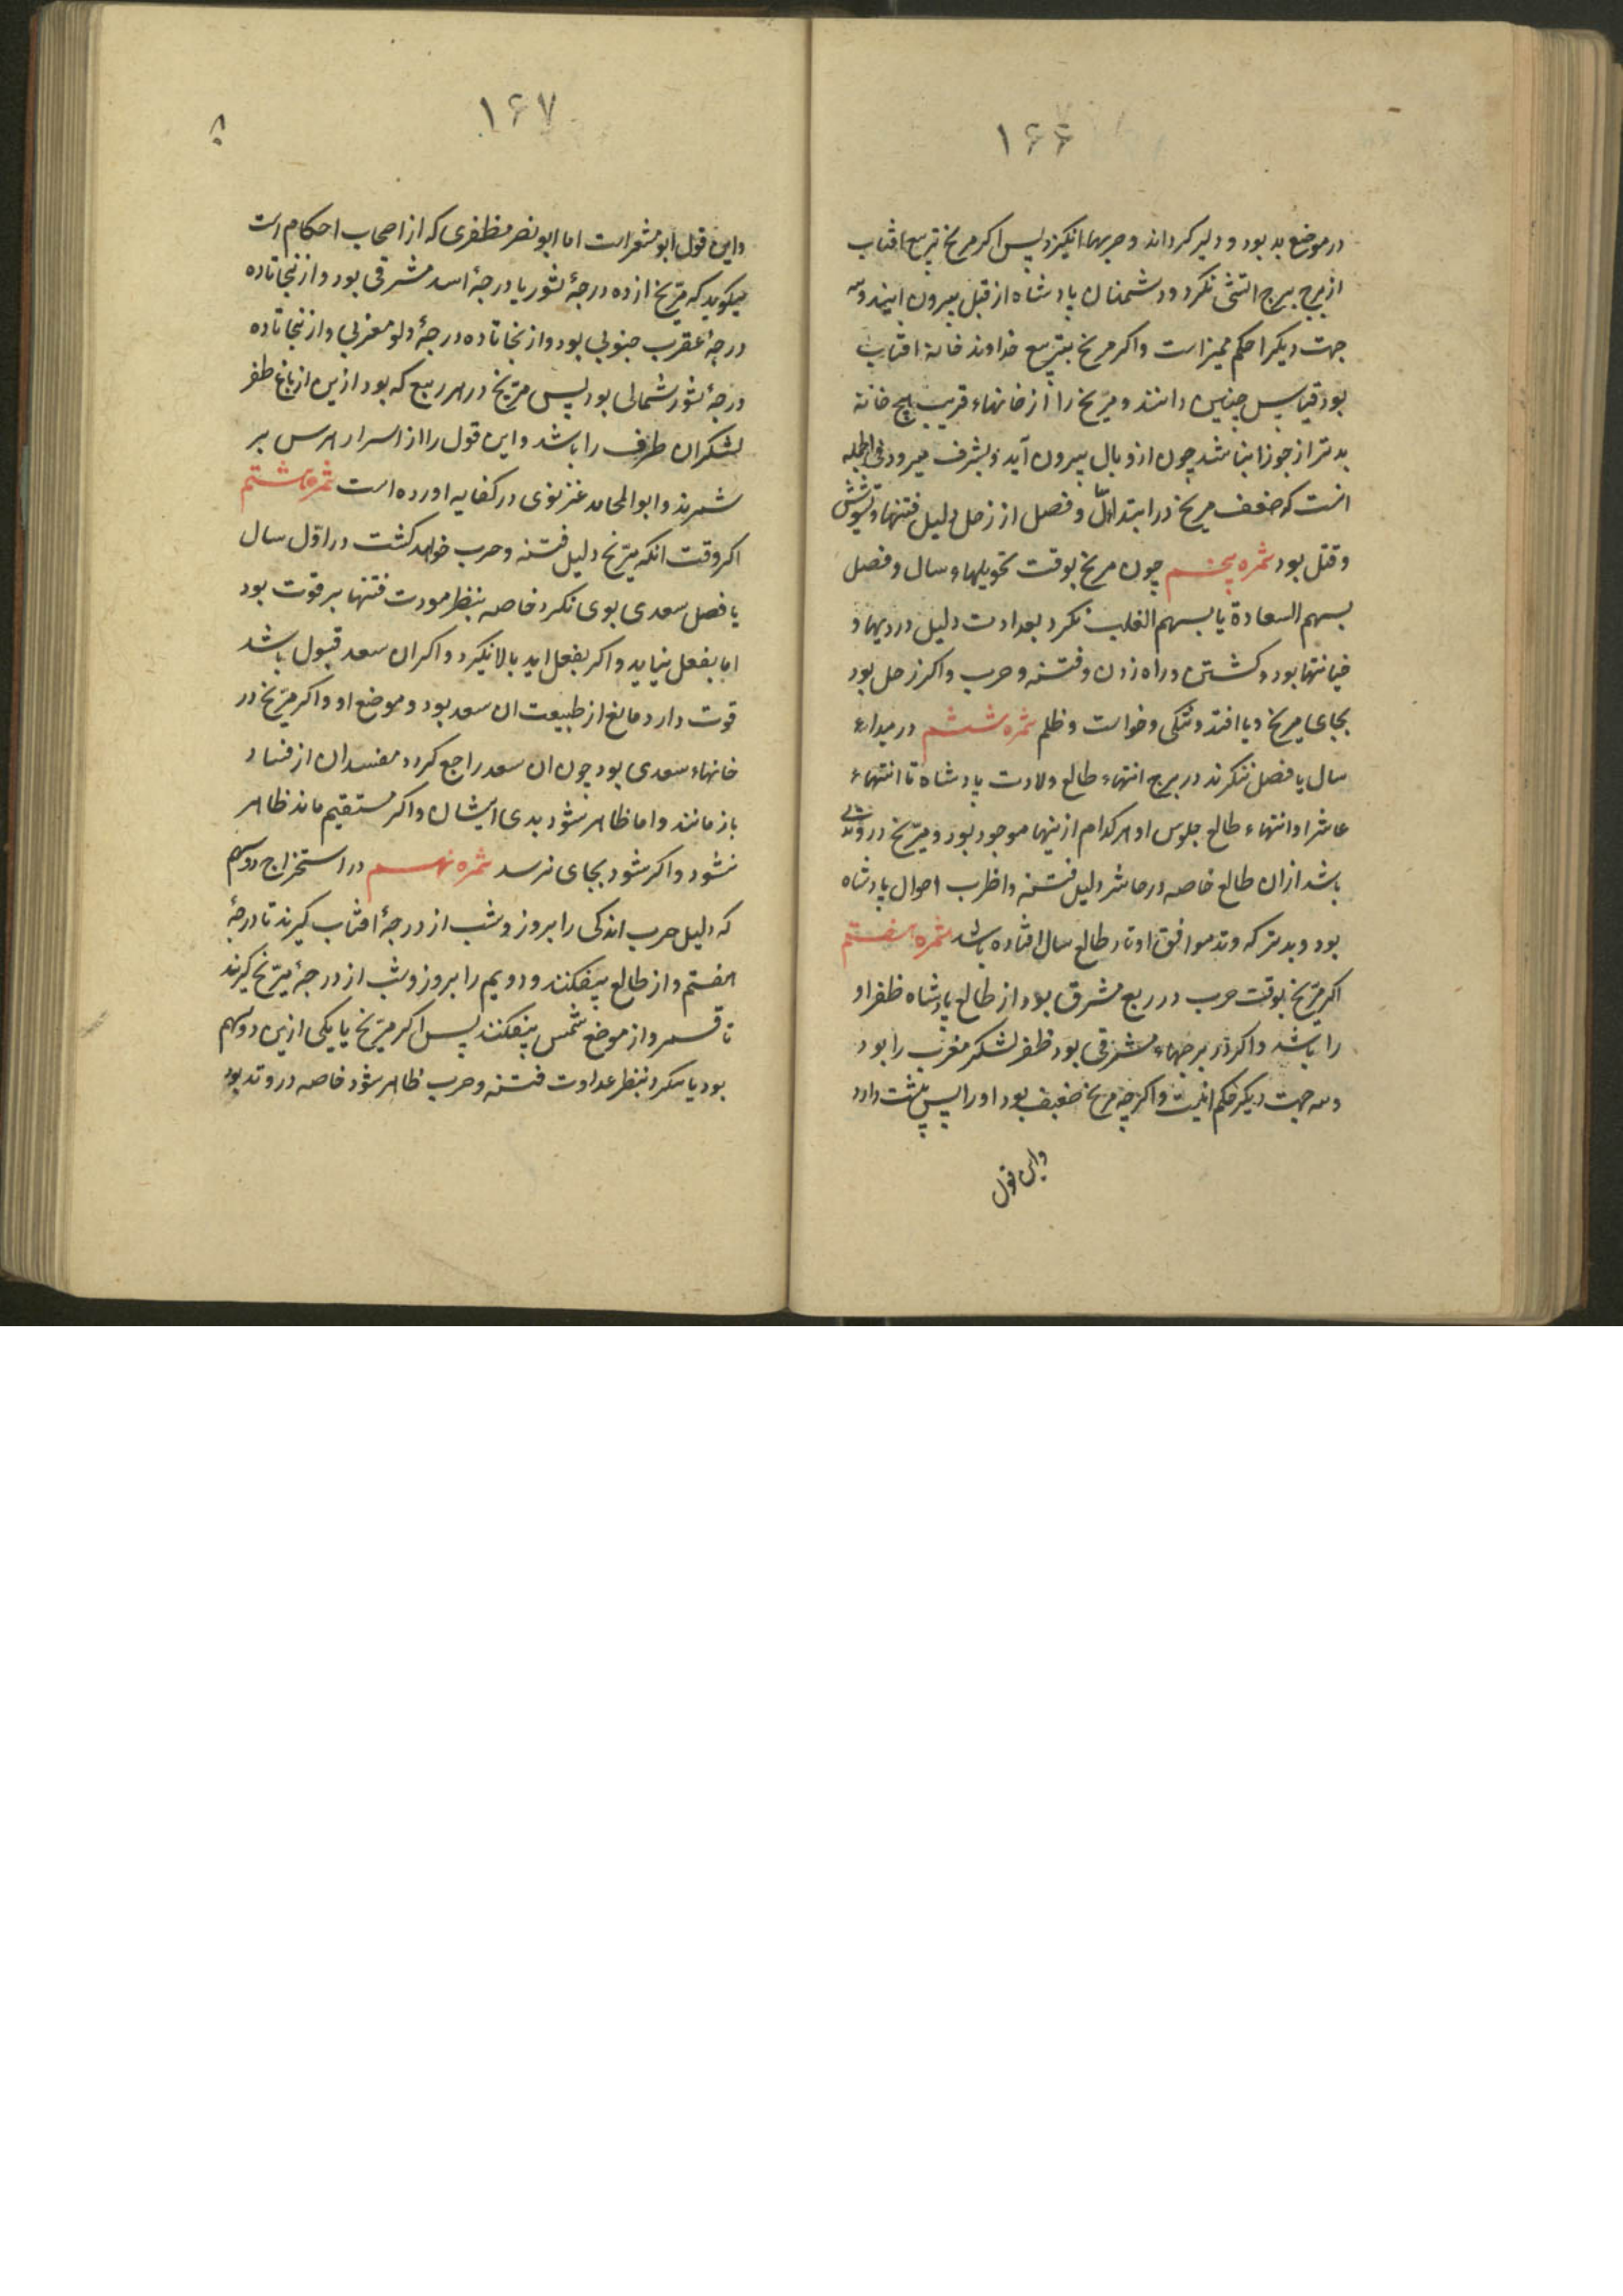 ۱۶۶
در موضع بد بود و دلیر کرداند و حربها انکیزد پس اکر مریخ بتربیع افتاب
از برج ببرج اتشی نکرد و دشمنان پادشاه از قبل بیرون ایند و سه
جهت دیکر احکم ممیز است و اکر مریخ بتربیع خداوند خانهٔ افتاب
بود قیاس چنین دانند و مریخ را از خانهاء قریب هیچ خانه
بدتر از جوزا نباشد چون ازو بال بیرون آید و بشرف میرود فی الجمله
انست که ضعف مریخ در ابتدا و فصل از زحل دلیل فتنها و تشویش
و قتل بود ثمره پنجم چون مریخ بوقت تحویلهاء سال و فصل
بسهم السعادة یا بسهم الغلبه نکرد بعداوت دلیل دزدیها و
خیانتها بود و کشتن و راه زدن و فتنه و حرب و اکر زحل بود
بجای مریخ وبا افتد و تنکی و خواست و ظلم ثمره ششم در مبداء
سال یا فصل ننکرند در برج انتهاء طالع ولادت پادشاه تا انتهاء
عاشر او انتهاء طالع جلوس او هر کدام ازینها موجود بود و مریخ در وتدی
باشد ازان طالع خاصه در عاشر دلیل فتنه و اظرب احوال پادشاه
بود و بدتر که وتد موافق اوتاد طالع سال افتاده باشد ثمره هفتم
اکر مریخ بوقت حرب در ربع مشرق بود از طالع پادشاه ظفر او
را باشد و اکر در برجهاء مشرقی بود ظفر لشکر مغرب را بود
و سه جهت دیکر حکم اینست و اکر چه مریخ ضعیف بود او را پس پشت دارد
واین قول
۱۶۷
واین قول ابو معشر است اما ابو نصر مظفری که از اصحاب احکام است
میکوید که مریخ از ده درجهٔ ثور یا درجهٔ اسد مشرقی بود و از نجا تا ده
درجهٔ عقرب جنوبی بود و از نجا تا ده درجهٔ دلو مغربی و از نجا تا ده
درجهٔ ثور شمالی بود پس مریخ در هر ربع که بود ازین ارباع ظفر
لشکر ان طرف را باشد و این قول را از اسرار هرس بر
شمرند و ابو المحامد غزنوی در کفایه اورده است ثمره هشتم
اکر وقت انکه مریخ دلیل فتنه و حرب خواهد کشت در اول سال
یا فصل سعدی بوی نکرد خاصه بنظر مودت فتنها بر قوت بود
اما بفعل نیاید و اکر بفعل اید بالا نکیرد و اکر ان سعد قبول باشد
قوت دارد مانع از طبیعت ان سعد بود و موضع او و اکر مریخ در
خانهاء سعدی بود چون ان سعد راجع کردد مفسدان از فساد
باز مانند و اما ظاهر نشود بدی ایشان و اکر مستقیم ماند ظاهر
نشود و اکر شود بجای نرسد ثمره نهم در استخراج دو سهم
که دلیل حرب اند یکی را بروز و شب از درجهٔ افتاب کیرند تا درجهٔ
هفتم و از طالع بیفکنند و دویم را بروز و شب از درجهٔ مریخ کیرند
تا قمر و از موضع شمس بیفکنند پس اکر مریخ با یکی ازین دو سهم
بود یا بنکرد بنظر عداوت فتنه و حرب ظاهر شود خاصه در وتد بود